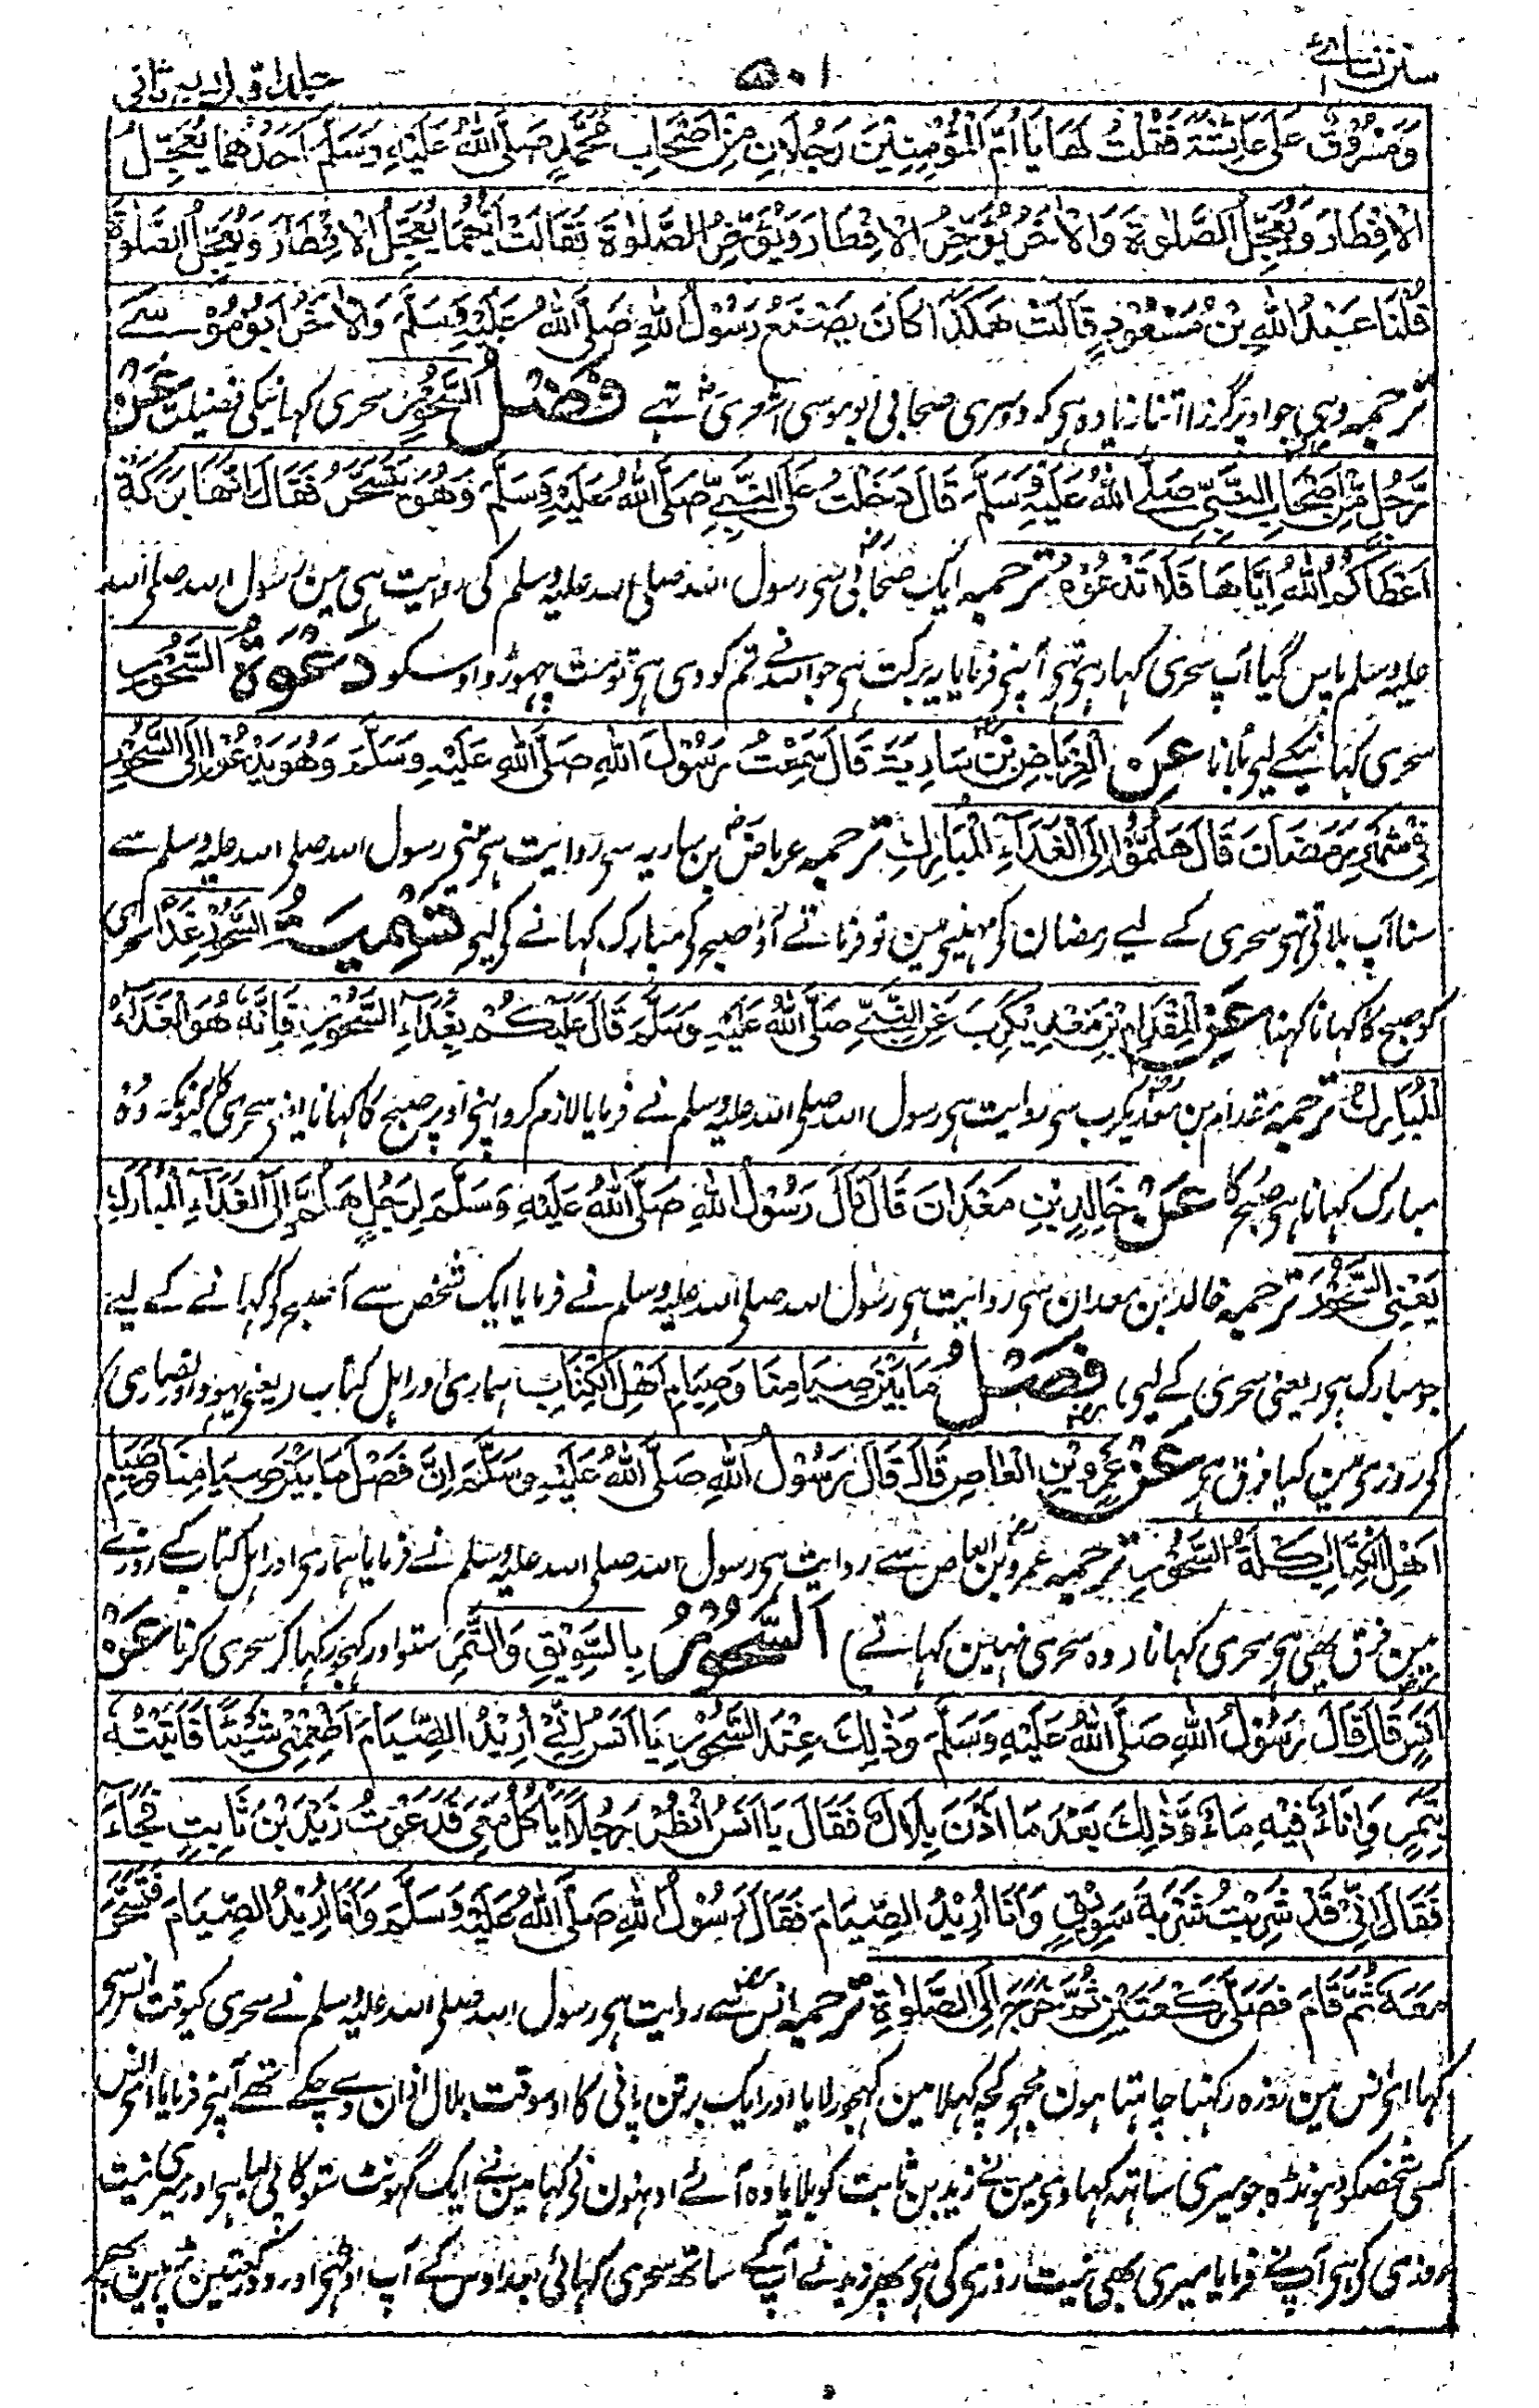 سنن نسائے
۵۰۱
جلد اول از سیر ثانی
وَمَسْرُوْقٌ عَلٰى عَائِشَةَ فَقُلْتُ لَهَا يَا اُمَّ الْمُؤْمِنِيْنَ رَجُلَانِ مِنْ اَصْحَابِ مُحَمَّدٍ صَلَّى اللّٰهُ عَلَيْهِ وَسَلَّمَ اَحَدُهُمَا يُعَجِّلُ
الْاِفْطَارَ وَيُعَجِّلُ الصَّلٰوةَ وَالْاٰخَرُ يُؤَخِّرُ الْاِفْطَارَ وَيُؤَخِّرُ الصَّلٰوةَ فَقَالَتْ اَيُّهُمَا يُعَجِّلُ الْاِفْطَارَ وَيُعَجِّلُ الصَّلٰوةَ
قُلْنَا عَبْدُ اللّٰهِ بْنُ مَسْعُوْدٍ قَالَتْ هٰكَذَا كَانَ يَصْنَعُ رَسُوْلُ اللّٰهِ صَلَّى اللّٰهُ عَلَيْهِ وَسَلَّمَ وَالْاٰخَرُ اَبُوْ مُوْسٰے
ترجمہ وہی جو اوپر گزرا اتنا زیادہ ہی کہ دوسری صحابی ابو موسی اشعری تہے فَضْلُ السَّحُوْرِ سحری کہانیکی فضیلت عَنْ
رَّجُلٍ مِّنْ اَصْحَابِ النَّبِيِّ صَلَّى اللّٰهُ عَلَيْهِ وَسَلَّمَ قَالَ دَخَلْتُ عَلَى النَّبِيِّ صَلَّى اللّٰهُ عَلَيْهِ وَسَلَّمَ وَهُوَ يَتَسَحَّرُ فَقَالَ اِنَّهَا بَرَكَةٌ
اَعْطَاكُمُ اللّٰهُ اِيَّاهَا فَلَا تَدَعُوْهُ ترجمہ ایک صحابی سی رسول اللہ صلی اللہ علیہ وسلم کی روایت ہی مین رسول اللہ صلی اللہ
علیہ وسلم پاس گیا آپ سحری کہا رہی تہی آپنی فرمایا یہ برکت ہی جو اللہ نے تم کو دی ہی تو مت چہوڑو اوسکو دَعْوَةُ السَّحُوْرِ
سحری کہانیکے لیے بلانا عَنِ الْعِرْبَاضِ بْنِ سَارِيَةَ قَالَ سَمِعْتُ رَسُوْلَ اللّٰهِ صَلَّى اللّٰهُ عَلَيْهِ وَسَلَّمَ وَهُوَ يَدْعُوْ اِلَى السَّحُوْرِ
فِيْ شَهْرِ رَمَضَانَ قَالَ هَلُمُّوْا اِلَى الْغَدَآءِ الْمُبَارَكِ ترجمہ عرباض بن ساریہ سی روایت ہی مینی رسول اللہ صلی اللہ علیہ وسلم سے
سنا آپ بلاتی تہی سحری کے لیے رمضان کی مہینی مین تو فرماتے آؤ صبح کی مبارک کہانے کی لیی تَسْمِيَةُ السَّحُوْرِ غَدَآءً سحری
کو صبح کا کہانا کہنا عَنِ الْمِقْدَامِ بْنِ مَعْدِيْكَرِبَ عَنِ النَّبِيِّ صَلَّى اللّٰهُ عَلَيْهِ وَسَلَّمَ قَالَ عَلَيْكُمْ بِغَدَآءِ السَّحُوْرِ فَاِنَّهٗ هُوَ الْغَدَآءُ
الْمُبَارَكُ ترجمہ مقدام بن معدیکرب سی روایت ہی رسول اللہ صلی اللہ علیہ وسلم نے فرمایا لازم کرو اپنی اوپر صبح کا کہانا یعنی سحری کا کیونکہ وہ
مبارک کہانا ہی صبح کا عَنْ خَالِدِ بْنِ مَعْدَانَ قَالَ قَالَ رَسُوْلُ اللّٰهِ صَلَّى اللّٰهُ عَلَيْهِ وَسَلَّمَ لِرَجُلٍ هَلُمَّ اِلَى الْغَدَآءِ الْمُبَارَكِ
يَعْنِى السَّحُوْرَ ترجمہ خالد بن معدان سی روایت ہی رسول اللہ صلی اللہ علیہ وسلم نے فرمایا ایک شخص سے آ صبح کی کہانے کے لیے
جو مبارک ہی یعنی سحری کے لیی فَصْلُ مَا بَيْنَ صِيَامِنَا وَصِيَامِ اَهْلِ الْكِتَابِ ہماری اور اہل کتاب (یعنی یہود اور نصاری)
کی روزی مین کیا فرق ہی عَنْ عَمْرِو بْنِ الْعَاصِ قَالَ قَالَ رَسُوْلُ اللّٰهِ صَلَّى اللّٰهُ عَلَيْهِ وَسَلَّمَ اِنَّ فَصْلَ مَا بَيْنَ صِيَامِنَا وَصِيَامِ
اَهْلِ الْكِتَابِ اَكْلَةُ السَّحُوْرِ ترجمہ عمرو بن العاص سے روایت ہی رسول اللہ صلی اللہ علیہ وسلم نے فرمایا ہماری اور اہل کتاب کے روزے
مین فرق یہی ہی سحری کہانا (وہ سحری نہین کہاتے) اَلسَّحُوْرُ بِالسَّوِيْقِ وَالتَّمْرِ ستو اور کہجور کہا کر سحری کرنا عَنْ
اَنَسٍ قَالَ قَالَ رَسُوْلُ اللّٰهِ صَلَّى اللّٰهُ عَلَيْهِ وَسَلَّمَ وَذٰلِكَ عِنْدَ السَّحُوْرِ يَا اَنَسُ اِنِّيْ اُرِيْدُ الصِّيَامَ اَطْعِمْنِيْ شَيْئًا فَاَتَيْتُهٗ
بِتَمْرٍ وَاِنَاءٍ فِيْهِ مَاءٌ وَّذٰلِكَ بَعْدَ مَا اَذَّنَ بِلَالٌ فَقَالَ يَا اَنَسُ انْظُرْ رَجُلًا يَّاْكُلْ مَعِيَ فَدَعَوْتُ زَيْدَ بْنَ ثَابِتٍ فَجَآءَ
فَقَالَ اِنِّيْ قَدْ شَرِبْتُ شَرْبَةَ سَوِيْقٍ وَاَنَا اُرِيْدُ الصِّيَامَ فَقَالَ رَسُوْلُ اللّٰهِ صَلَّى اللّٰهُ عَلَيْهِ وَسَلَّمَ وَاَنَا اُرِيْدُ الصِّيَامَ فَتَسَحَّرَ
مَعَهٗ ثُمَّ قَامَ فَصَلّٰى رَكْعَتَيْنِ ثُمَّ خَرَجَ اِلَى الصَّلٰوةِ ترجمہ انس سے روایت ہی رسول اللہ صلی اللہ علیہ وسلم نے سحری کیوقت انس سی
کہا ای انس مین روزہ رکہنا چاہتا ہون مجہی کچہ کہلا مین کہجور لایا اور ایک برتن پانی کا اوسوقت بلال اذان دے چکے تھے آپنی فرمایا ای انس
کسی شخص کو ڈہونڈہ جو میری ساتہہ کہاوی مین نے زید بن ثابت کو بلایا وہ آئے اونہون نی کہا مین نے ایک گہونٹ ستو کا پی لیا ہی اور میری نیت
روزی کی ہی آپ نے فرمایا میری بھی نیت روزی کی ہی پھر زید نے آپ کے ساتھ سحری کہائی بعد اوس کے آپ اوٹہی اور دو رکعتین پڑہین پھر